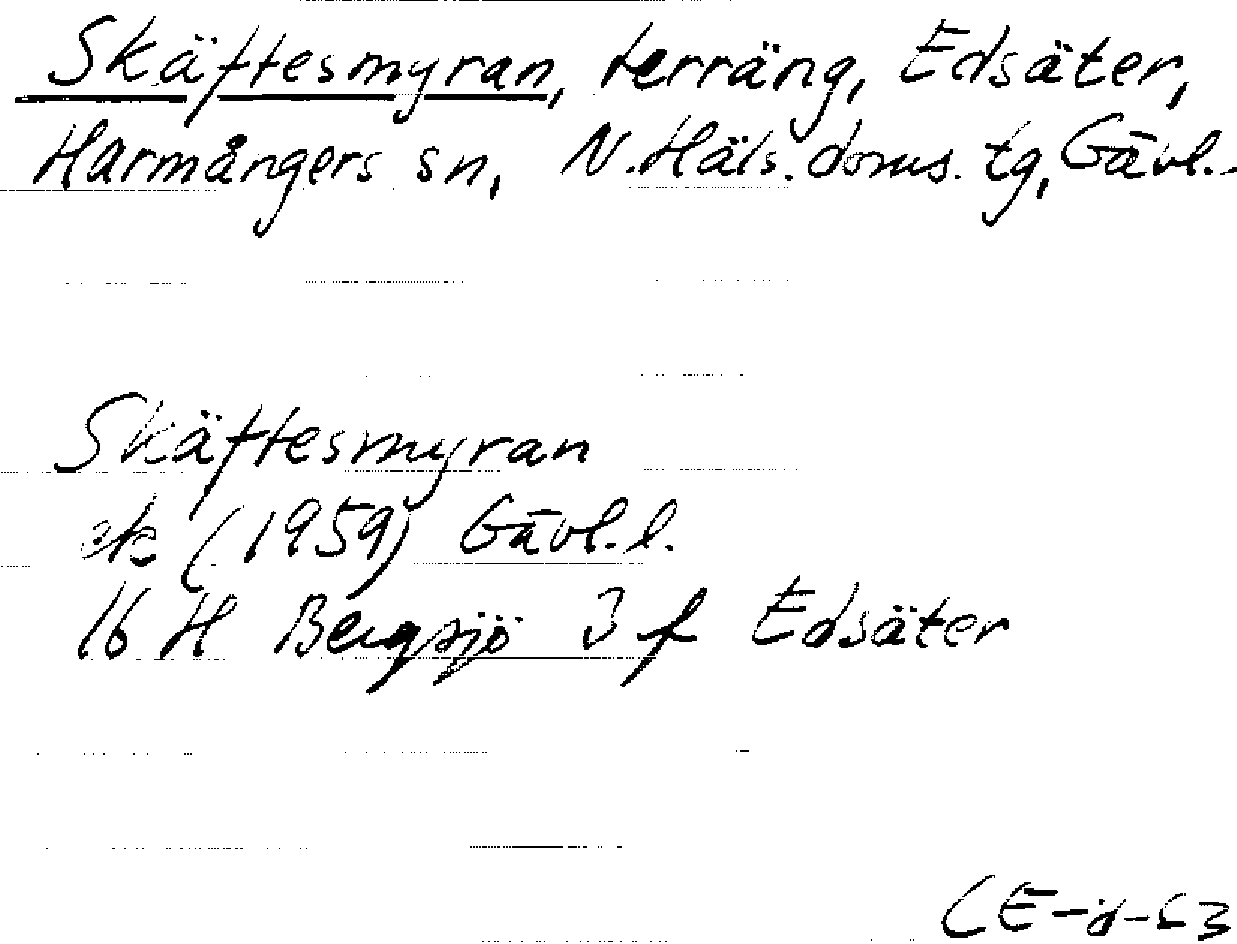 Skäftesmyran, terräng, Edsäter,
Harmångers sn, N. Häls. doms. tg, Gävl..
Skäftesmyran
ek (1959) Gävl.l.
16 H Bergsjö 3 f Edsäter